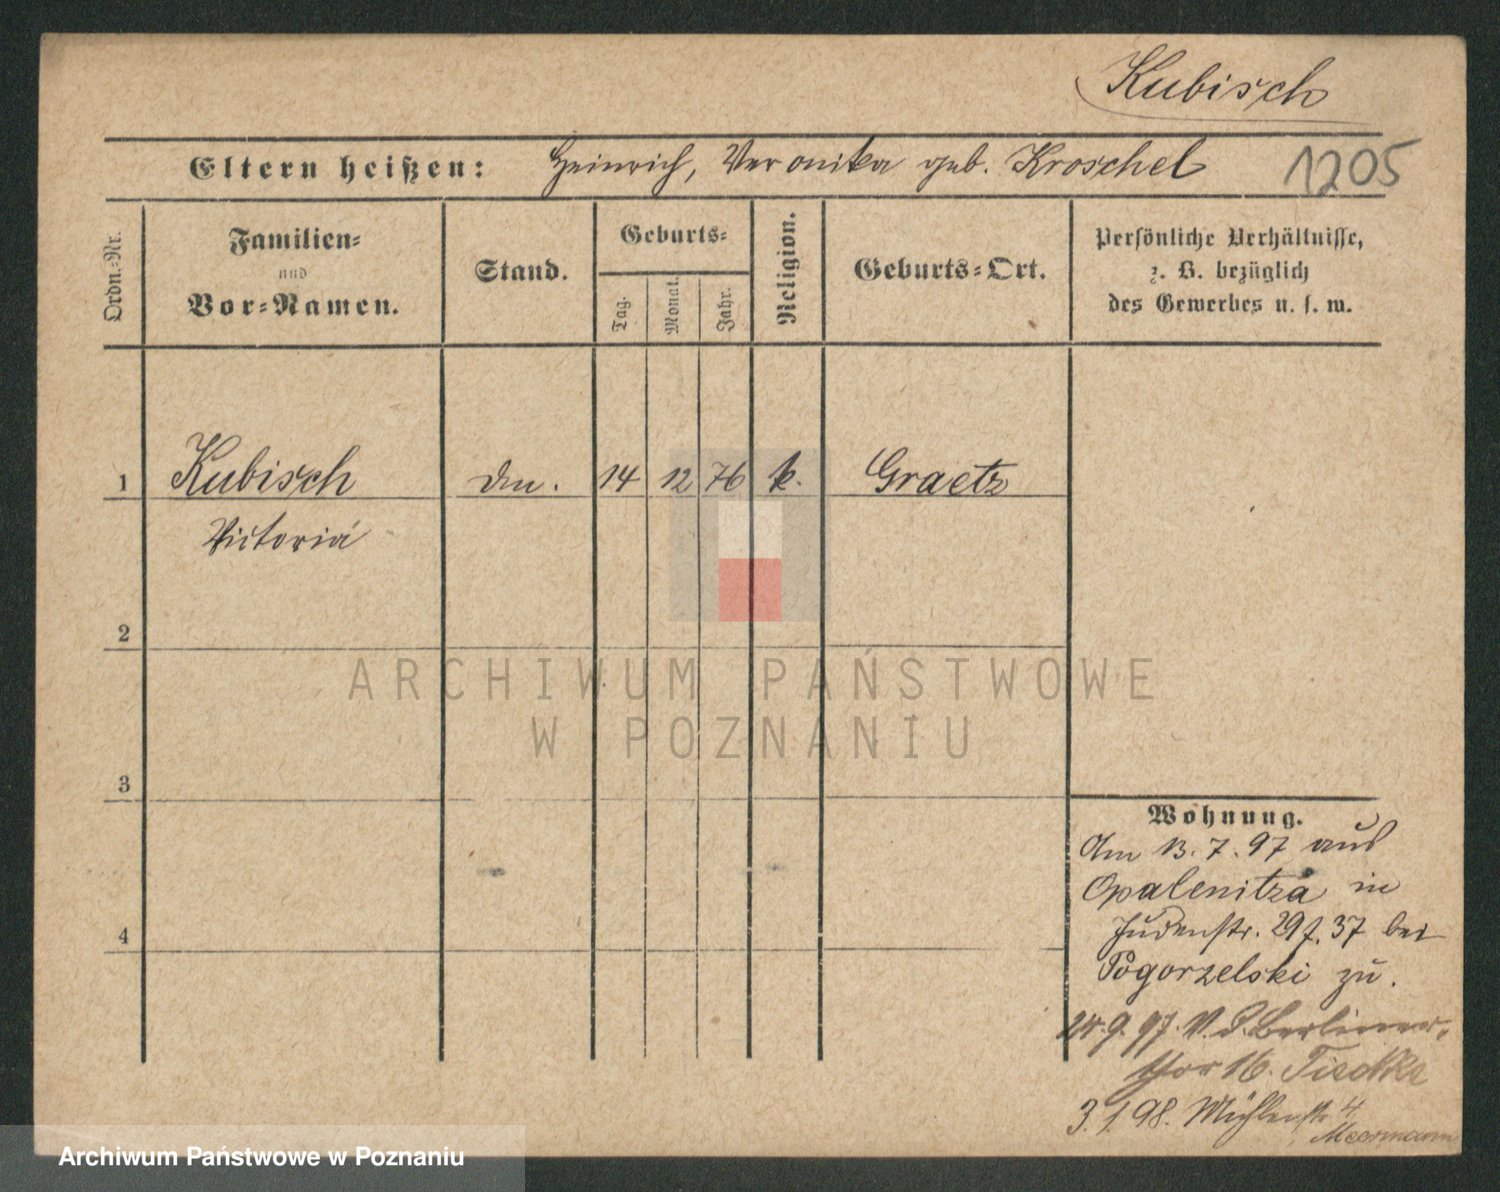 Kubisch
Eltern heißen: Heinrich, Veronika geb. Kroschel
1205
Ordn.-Nr.
Familien-
und
Vor-Namen.
Stand.
Geburts-
Tag.
Monat.
Jahr.
Religion.
Geburts-Ort.
Persönliche Verhältnisse,
z. B. bezüglich
des Gewerbes u. s. w.
1 Kubisch 14 12 76 k. Graetz
Victoria
2
3
4
ARCHIWUM PAŃSTWOWE
W POZNANIU
Wohnung.
Am 13.7.97 aus
Opalenitza in
Judenstr. 29 37 bei
Pogorzelski zu.
24.9.97. V. d. Berliner-
thor 16.
3.1.98. Mühlenstr 4
Archiwum Państwowe w Poznaniu